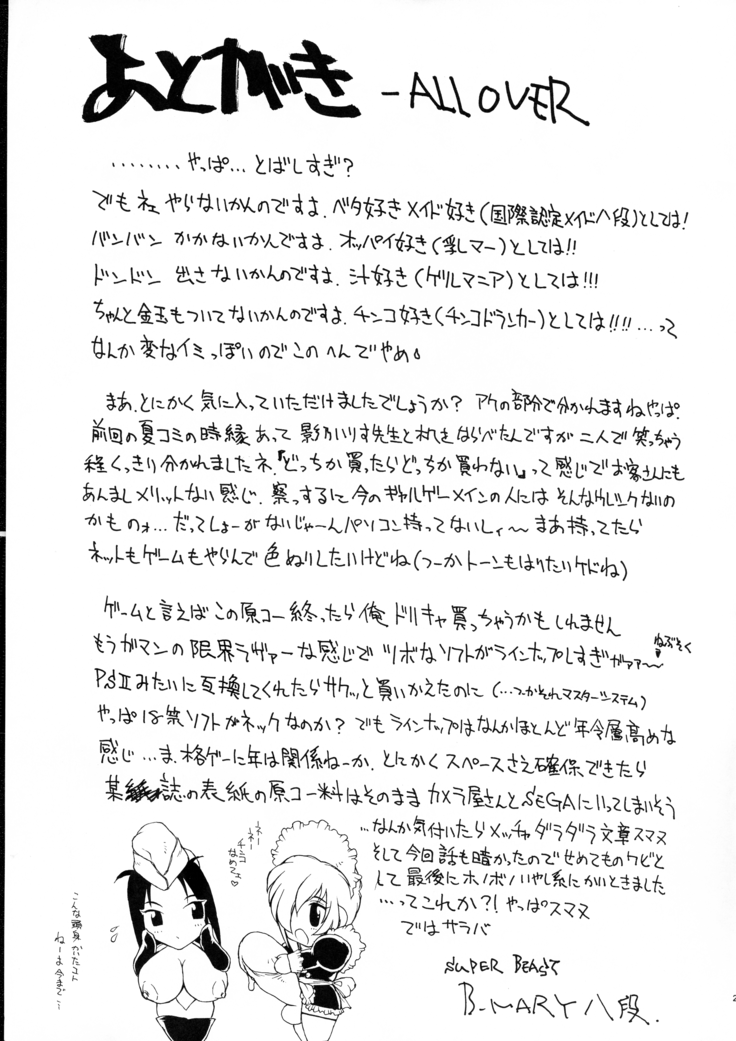 あとがき -ALL OVER
........やっぱ…とばしすぎ?
でもネェ やらないかんのですよ.ベタ好きメイド好き(国際認定メイド八段)としては!
バンバン かかないかんですよ.オッパイ好き(乳しマー)としては!!
ドンドン 出さないかんのですよ.汁好き(ゲリルマニア)としては!!!
ちゃんと金玉もついてないかんのですよ.チンコ好き(チンコドランカー)としては!!!!…って
なんか変なイミっぽいのでこのへんでやめ。
まあ、とにかく気に入っていただけましたでしょうか? アケの部分で分かれますねやっぱ.
前回の夏コミの時縁あって 影乃いりす先生と机をならべたんですが二人で笑っちゃう
程くっきり分かれましたネ.『どっちか買ったらどっちか買わない』って感じでお客さんにも
あんましメリットない感じ.察っするに今のギャルゲーメインの人にはそんなウレシクないの
かものォ…だってしょーがないじゃーんパソコン持ってないしィ〜まあ持ってたら
ネットもゲームもやらんで色ぬりしたいけどね(つーかトーンもはりたいケドね)
ゲームと言えばこの原コー終ったら俺ドリキャ買っちゃうかもしれません
もうガマンの限界ラヴァーな感じでツボなソフトがラインナップしすぎがァァ〜
ねぶそく
PSⅡみたいに互換してくれたらサクッと買いかえたのに(…つーかそれマスターシステム)
やっぱ18禁ソフトがネックなのか? でもラインナップはなんかほとんど年令層高めな
感じ…ま、格ゲーに年は関係ねーか.とにかくスペースさえ確保できたら
某誌の表紙の原コー料はそのままカメラ屋さんとSEGAにいってしまいそう
…なんか気付いたらメッチャダラダラ文章スマヌ
そして今回話も暗かったのでせめてものワビと
して最後にホノボノいやし系にかいときました
…ってこれか?!やっぱスマヌ
ではサラバ
こんな頭身かいたコト
ねーよ今まで…
SUPER BEAST
B-MARY 八段.
2